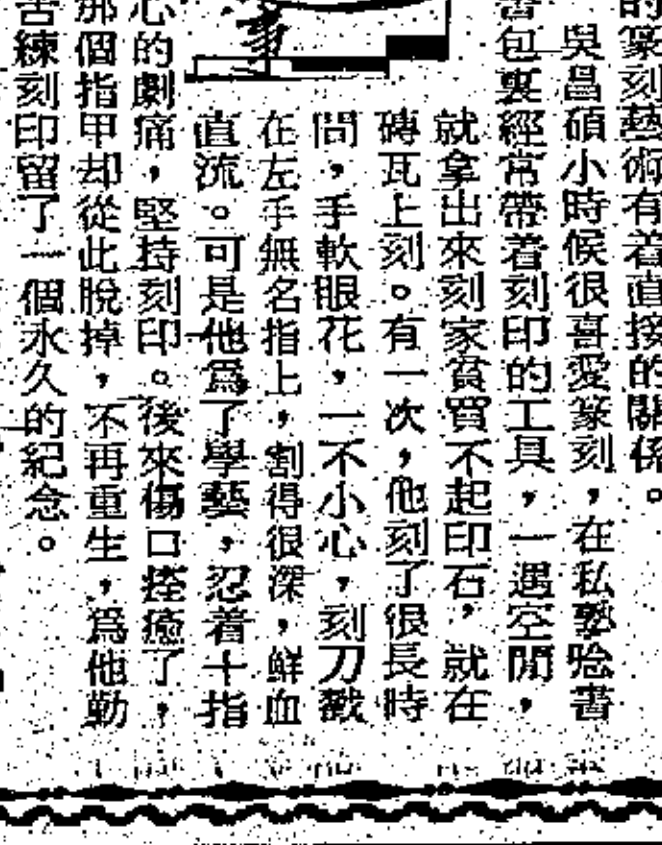 的篆刻藝術有着直接的關係。
吳昌碩小時候很喜愛篆刻,在私塾唸書
書包裏經常帶着刻印的工具,一遇空閒,
就拿出來刻家貧買不起印石,就在
磚瓦上刻。有一次,他刻了很長時
間,手軟眼花,一不小心,刻刀戳
在左手無名指上,割得很深,鮮血
直流。可是他爲了學藝,忍着十指
心的劇痛,堅持刻印。後來傷口痊癒了,
那個指甲却從此脫掉,不再重生,爲他勤
苦練刻印留了一個永久的紀念。
事